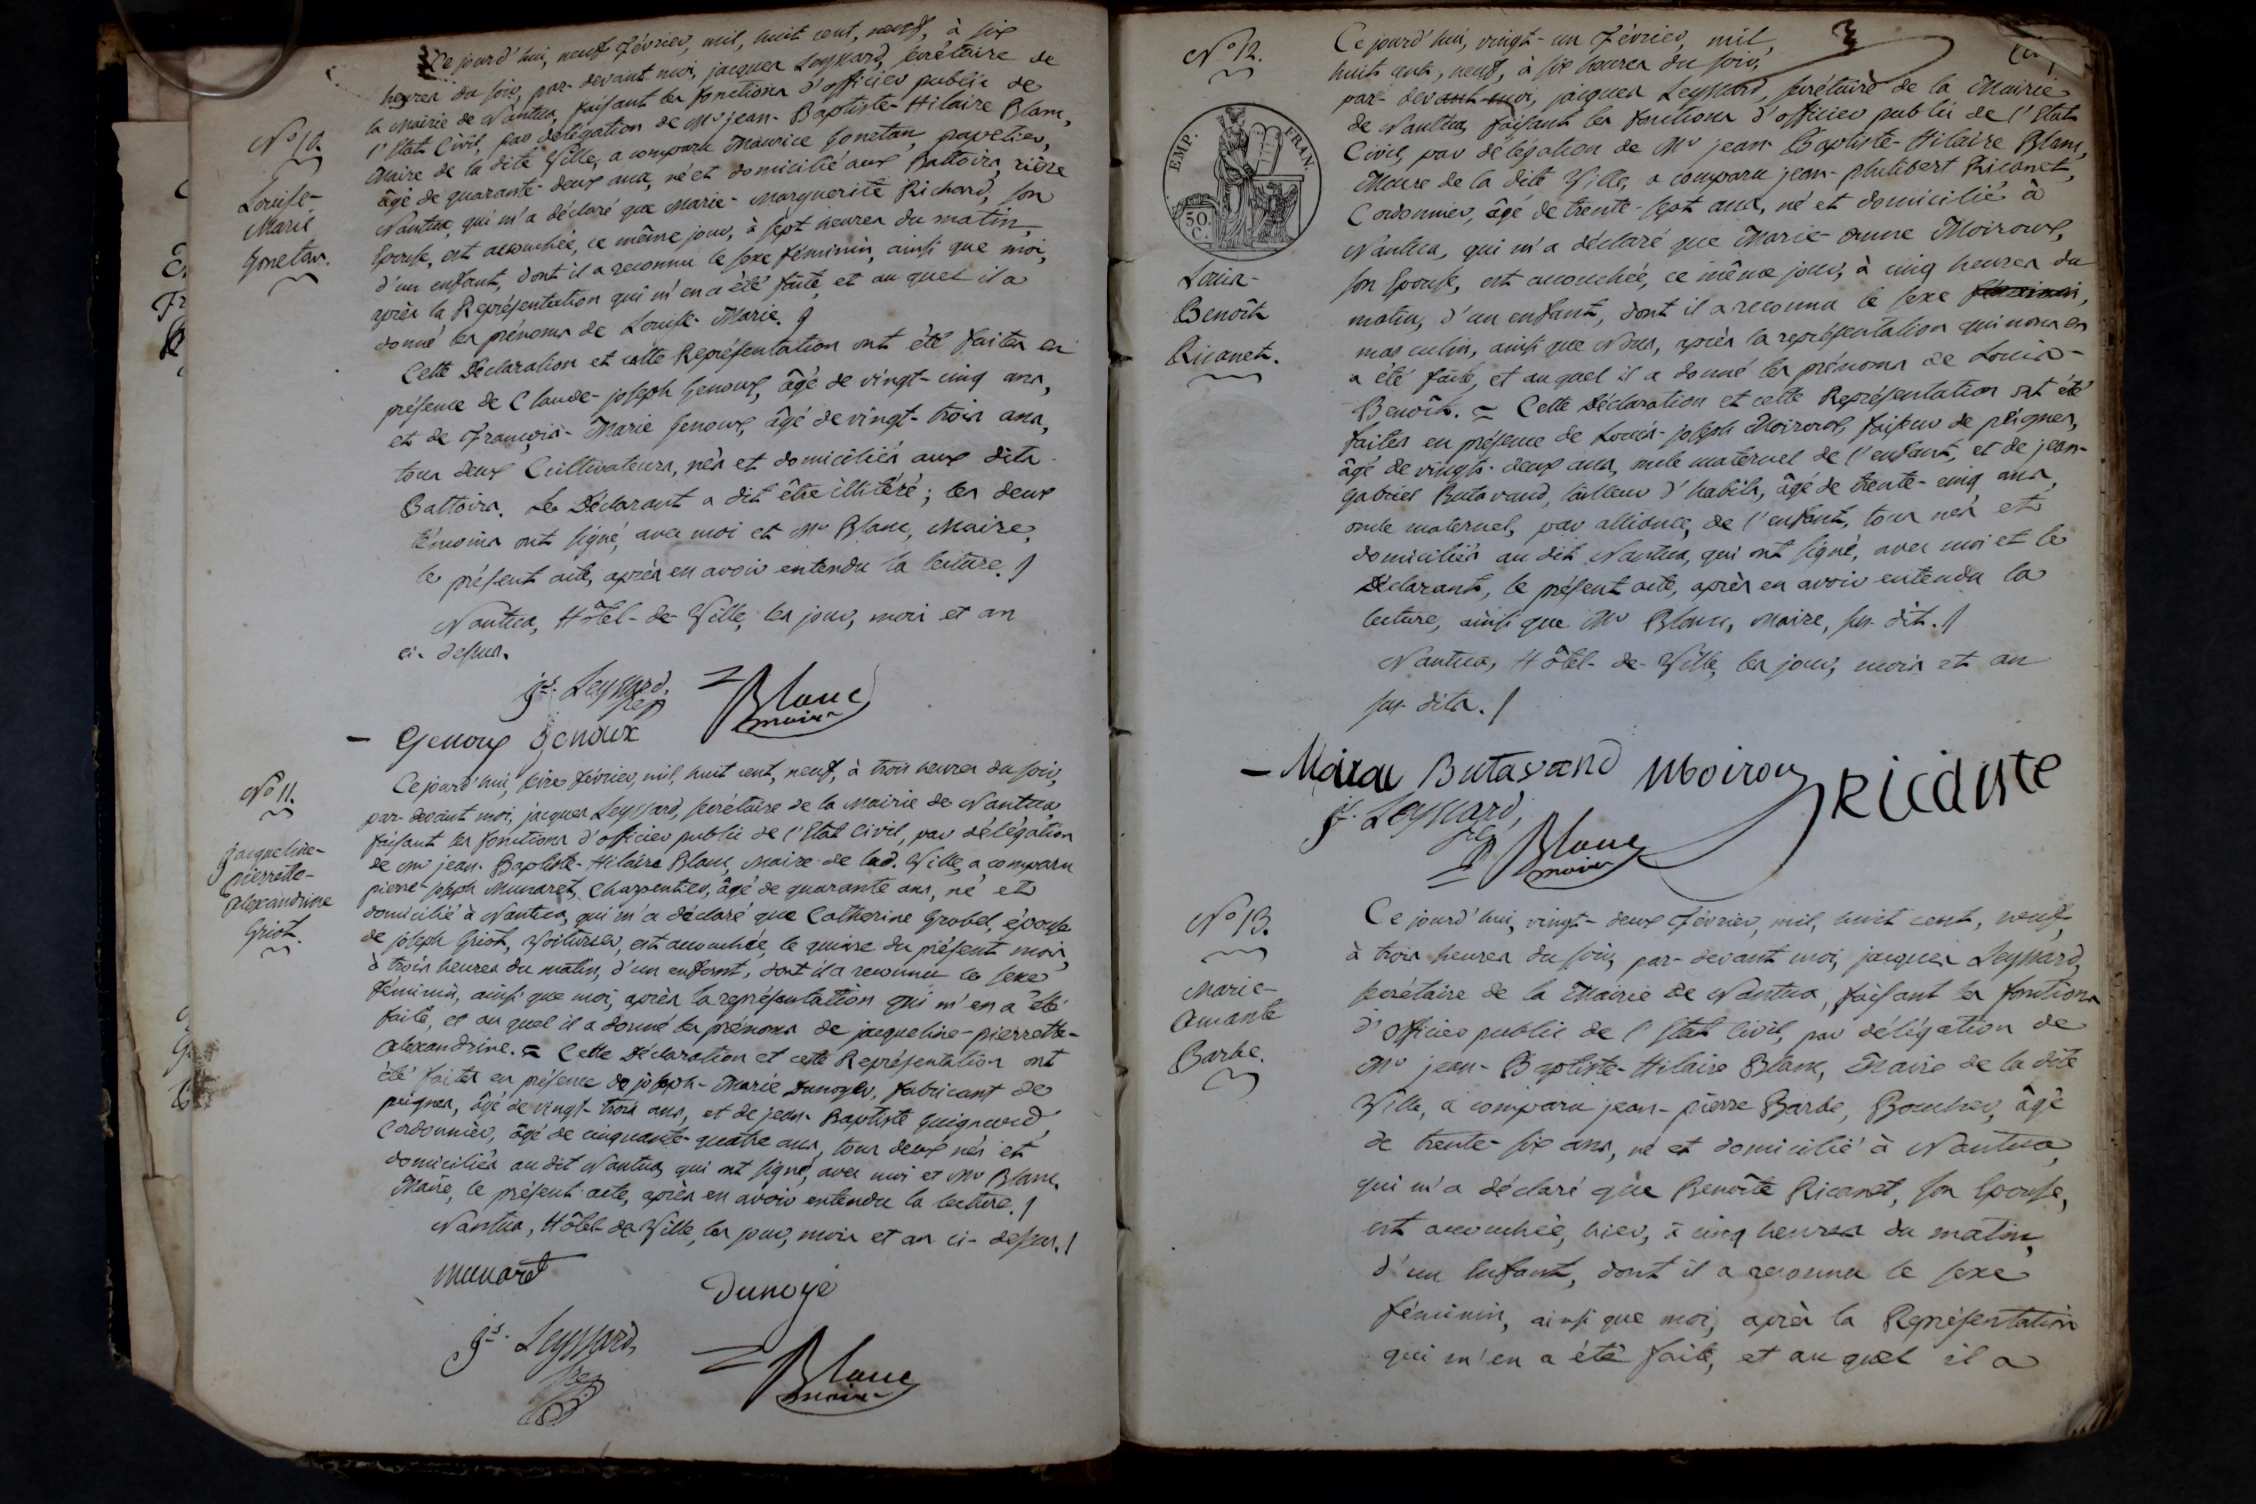 Ce jourd'hui, neuf février, mil, huit cent, neuf, à six
heures du soir, par-devant moi, jacques Leyssard, secrétaire de
la Mairie de Nantua, faisant les fonctions d'officier public de
l'Etat Civil, par délégation de Mr jean-Baptiste-Hilaire Blanc,
Maire de la dite Ville, a comparu Maurice Gonetan, papetier,
âgé de quarante-deux ans, né et domicilié aux Battoirs, rière
Nantua, qui m'a déclaré que Marie-Marguerite Richard, son
Epouse, est accouchée, ce même jour, à sept heures du matin,
d'un enfant, dont il a reconnu le sexe féminin, ainsi que moi,
après la Représentation qui m'en a été faite, et au quel il a
donné les prénoms de Louise-Marie.
Cette Déclaration et cette Représentation ont été faites en
présence de Claude-joseph Genoux, âgé de vingt-cinq ans,
et de françois-Marie Genoux, âgé de vingt-trois ans,
tous deux Cultivateurs, nés et domiciliés aux dits
Battoirs. Le Déclarant a dit être illitéré; les deux
témoins ont signé, avec moi et Mr Blanc, Maire,
le présent acte, après en avoir entendu la lecture./
Nantua, Hôtel-de-Ville, les jour, mois et an
ci-dessus.
No 10.
Louise-
Marie
Gonetan.
js. Leyssard.
Blanc
maire
Genoux Genoux
No 11.
jacqueline-
pierrette-
alexandrine
Griot.
Ce jourd'hui, seize février, mil, huit cent, neuf, à trois heures du soir,
par-devant moi, jacques Leyssard, secrétaire de la Mairie de Nantua,
faisant les fonctions d'officier public de l'Etat Civil, par délégation
de Mr jean-Baptiste-Hilaire Blanc, Maire de lad. Ville, a comparu
pierre-joseph Munaret, Charpentier, âgé de quarante ans, né et
domicilié à Nantua, qui m'a déclaré que Catherine Grobel, épouse
de joseph Griot, Voiturier, est accouchée, le quinze du présent mois,
à trois heures du matin, d'un enfant, dont il a reconnu le sexe
féminin, ainsi que moi, après la représentation qui m'en a été
faite, et au quel il a donné les prénoms de jacqueline-pierrette-
alexandrine. = Cette Déclaration et cette Représentation ont
été faites en présence de joseph-Marie Dunoyer, fabricant de
peignes, âgé de vingt-trois ans, et de jean-Baptiste Guignard,
Cordonnier, âgé de cinquante-quatre ans, tous deux nés et
domiciliés au dit Nantua, qui ont signé, avec moi et Mr Blanc,
Maire, le présent acte, après en avoir entendu la lecture./
Nantua, Hôtel-de-Ville, les jour, mois et an ci-dessus./
munaret
Dunoye
js. Leyssard,
Blanc
maire
3
No 12.
EMP. FRAN.
50. C.
Louis-
Benoît
Ricanet.
Ce jourd'hui, vingt-un février, mil,
huit cent, neuf, à six heures du soir,
par-devant moi, jacques Leyssard, secrétaire de la Mairie
de Nantua, faisant les fonctions d'officier public de l'Etat
Civil, par délégation de Mr jean-Baptiste-Hilaire Blanc,
Maire de la dite Ville, a comparu jean-philibert Ricanet,
Cordonnier, âgé de trente-sept ans, né et domicilié à
Nantua, qui m'a déclaré que Marie-anne Moiroux,
son Epouse, est accouchée, ce même jour, à cinq heures du
matin, d'un enfant, dont il a reconnu le sexe féminin,
masculin, ainsi que Nous, après la représentation qui nous en
a été faite, et au quel il a donné les prénoms de Louis-
Benoît. = Cette Déclaration et cette Représentation ont été
faites en présence de Louis-joseph Moiroux, faiseur de peignes,
âgé de vingt-deux ans, oncle maternel de l'enfant, et de jean-
gabriel Butavand, tailleur d'habits, âgé de trente-cinq ans,
oncle maternel, par alliance, de l'enfant, tous nés et
domiciliés au dit Nantua, qui ont signé, avec moi et le
Déclarant, le présent acte, après en avoir entendu la
lecture, ainsi que Mr Blanc, Maire, sus-dit./
Nantua, Hôtel-de-Ville, les jour, mois et an
sus-dits./
Butavand Moiroux
js. Leyssard,
Blanc
maire
No 13.
Marie-
Amante
Barbe.
Ce jourd'hui, vingt-deux février, mil, huit cent, neuf,
à trois heures du soir, par-devant moi, jacques Leyssard,
secrétaire de la Mairie de Nantua, faisant les fonctions
d'officier public de l'Etat Civil, par délégation de
Mr jean-Baptiste-Hilaire Blanc, Maire de la dite
Ville, a comparu jean-pierre Barbe, Boucher, âgé
de trente-six ans, né et domicilié à Nantua,
qui m'a déclaré que Benoîte Ricanet, son Epouse,
est accouchée, hier, à cinq heures du matin,
d'un Enfant, dont il a reconnu le sexe
féminin, ainsi que moi, après la Représentation
qui m'en a été faite, et au quel il a